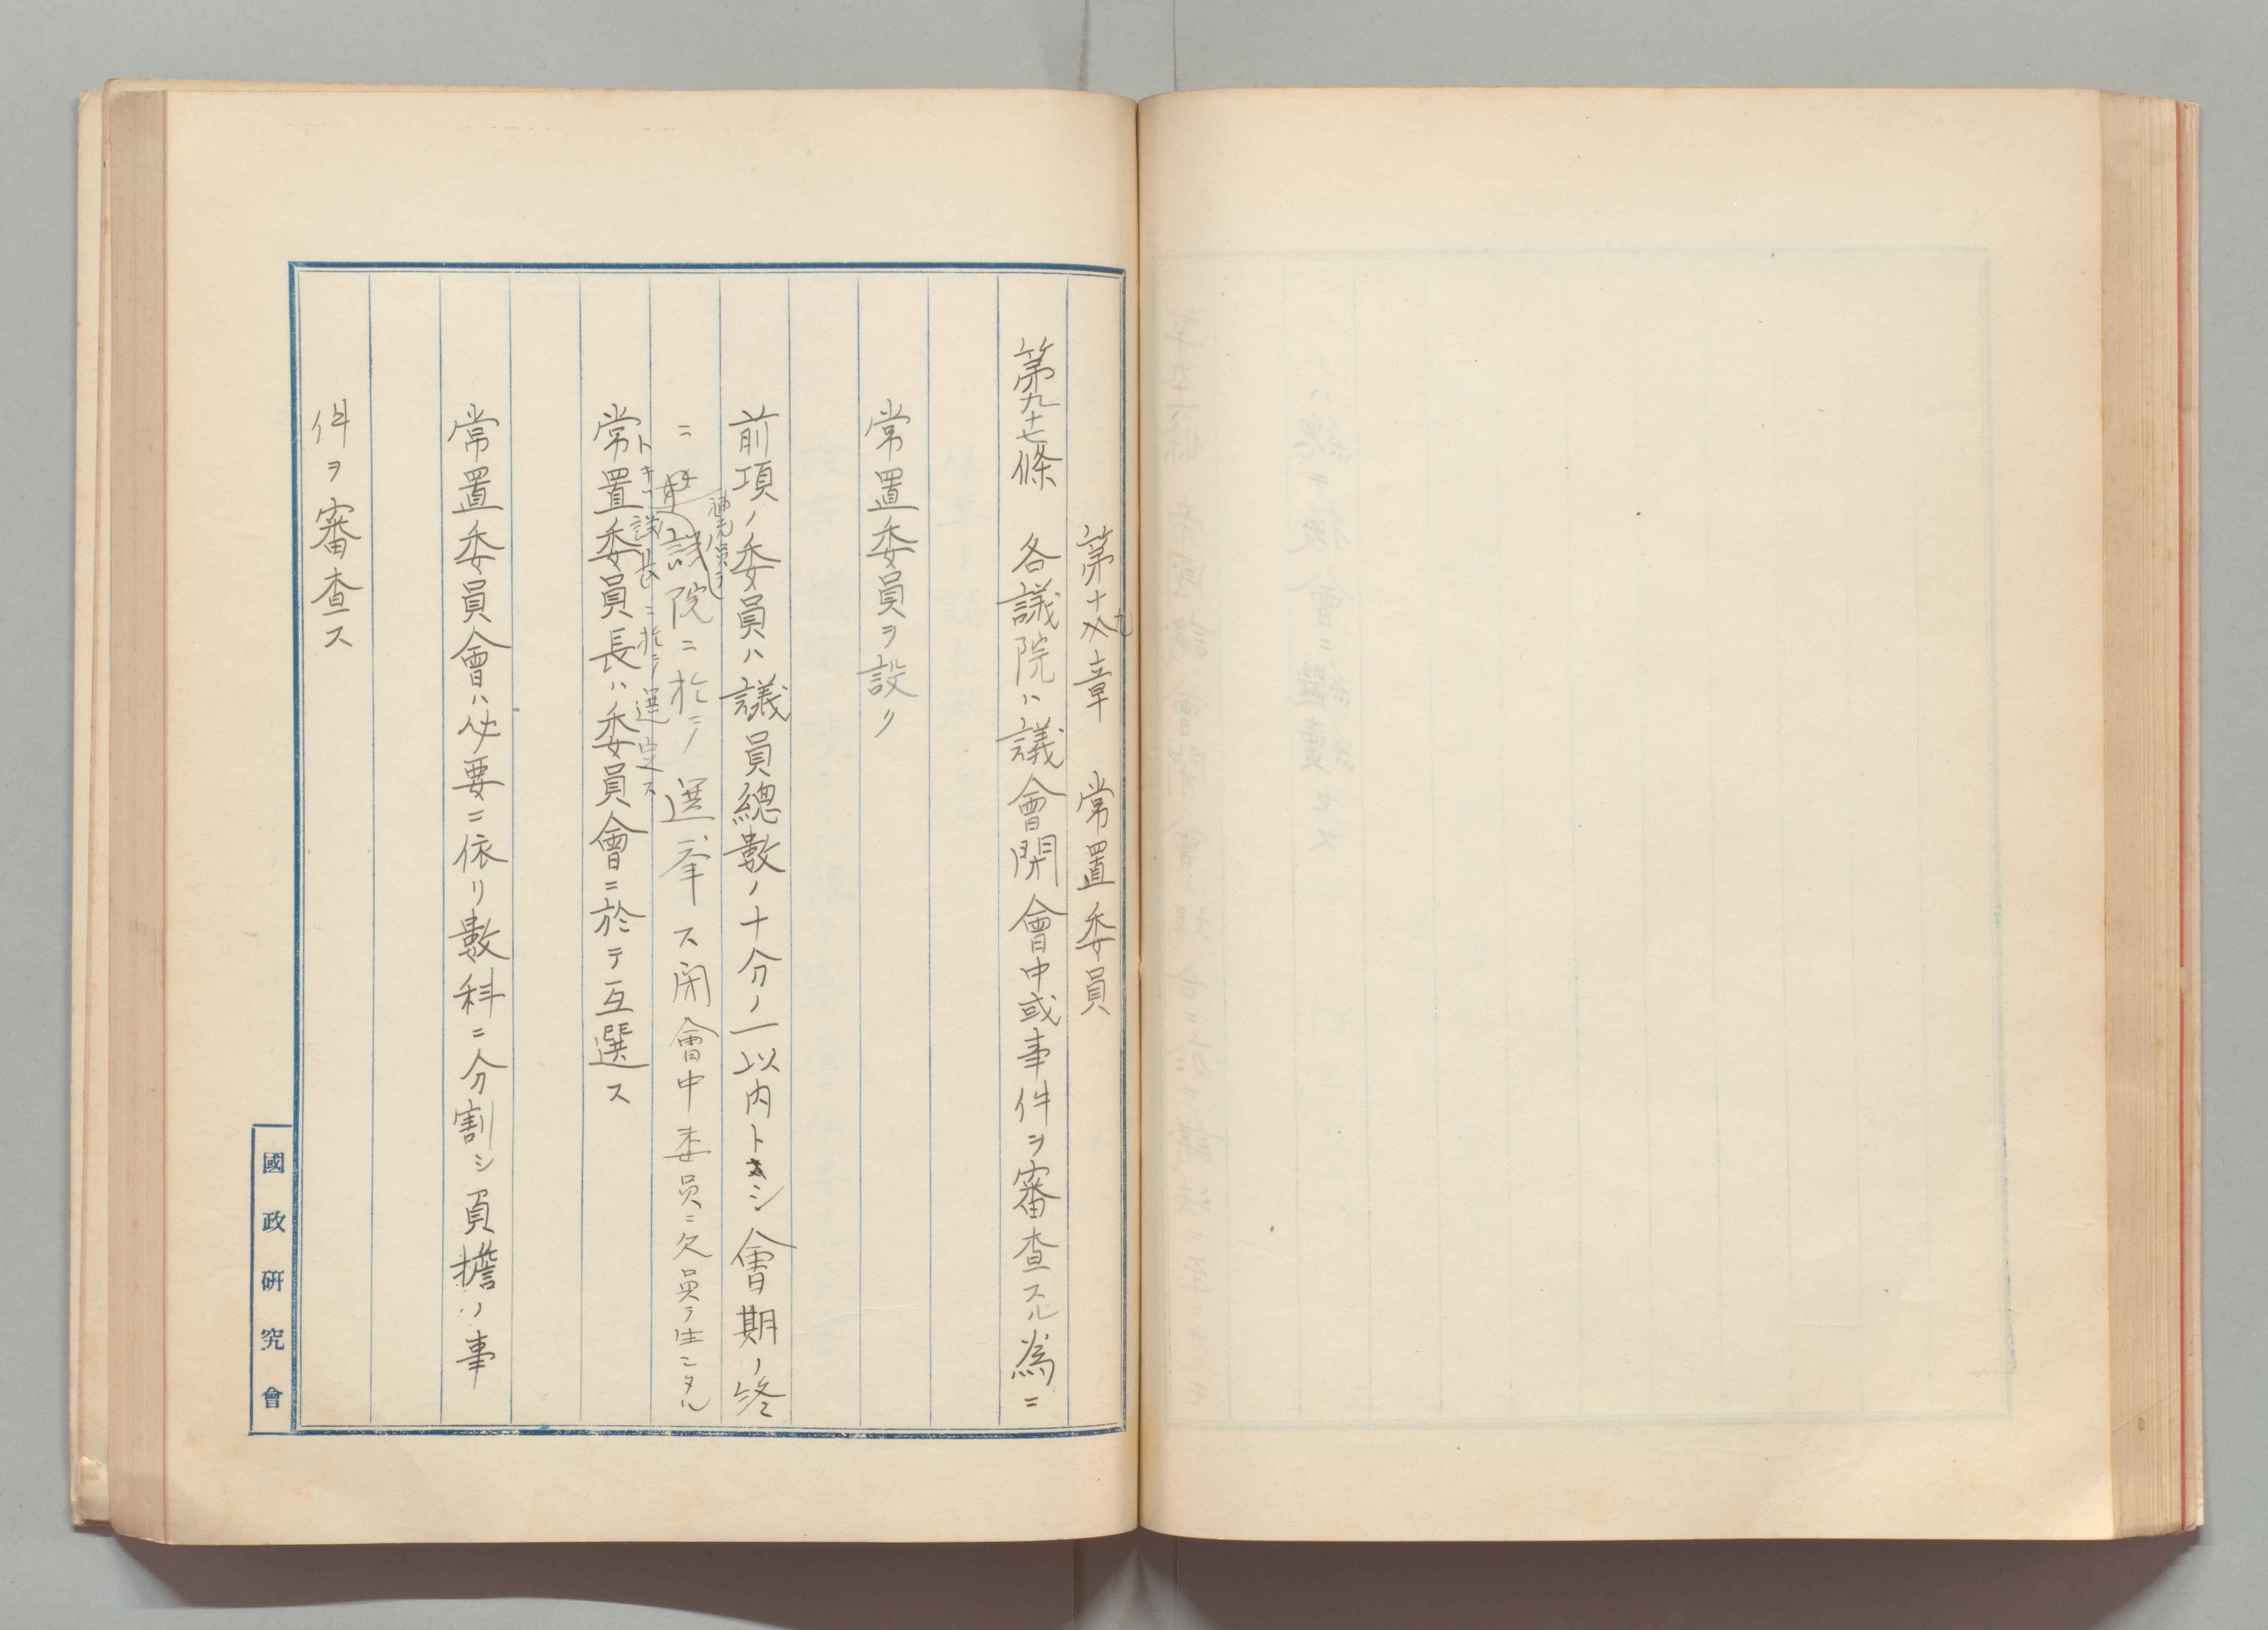 第十九章　常置委員
第九十七條　各議院ハ議會閉會中或事件ヲ審査スル為ニ
常置委員ヲ設ク
前項ノ委員ハ議員總數ノ十分ノ一以内トシ會期ノ終
ニ議院ニ於テ選挙ス閉會中委員ニ欠員ヲ生シタル
トキハ議長ニ於テ選定ス
補充員ヲ
常置委員長ハ委員會ニ於テ互選ス
常置委員會ハ必要ニ依リ數科ニ分割シ負擔ノ事
件ヲ審査ス
國政研究會